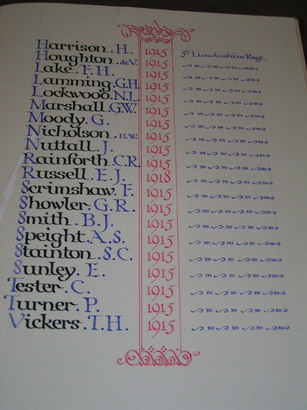 Harrison. H. 1915 5th Lincolnshire Regt.
Houghton. de V. 1915
Lake. F. H. 1915
Lamming. G.H. 1915
Lockwood. N.L. 1915
Marshall. G.W. 1915
Moody. G. 1915
Nicholson. H.W. 1915
Nuttall. J. 1915
Rainforth. C.R. 1915
Russell. E. J. 1918
Scrimshaw. F. 1915
Showler. G. R. 1915
Smith. B. J. 1915
Speight. A. S. 1915
Stainton. S. C. 1915
Sunley. E. 1915
Tester. C. 1915
Turner. P. 1915
Vickers. T. H. 1915